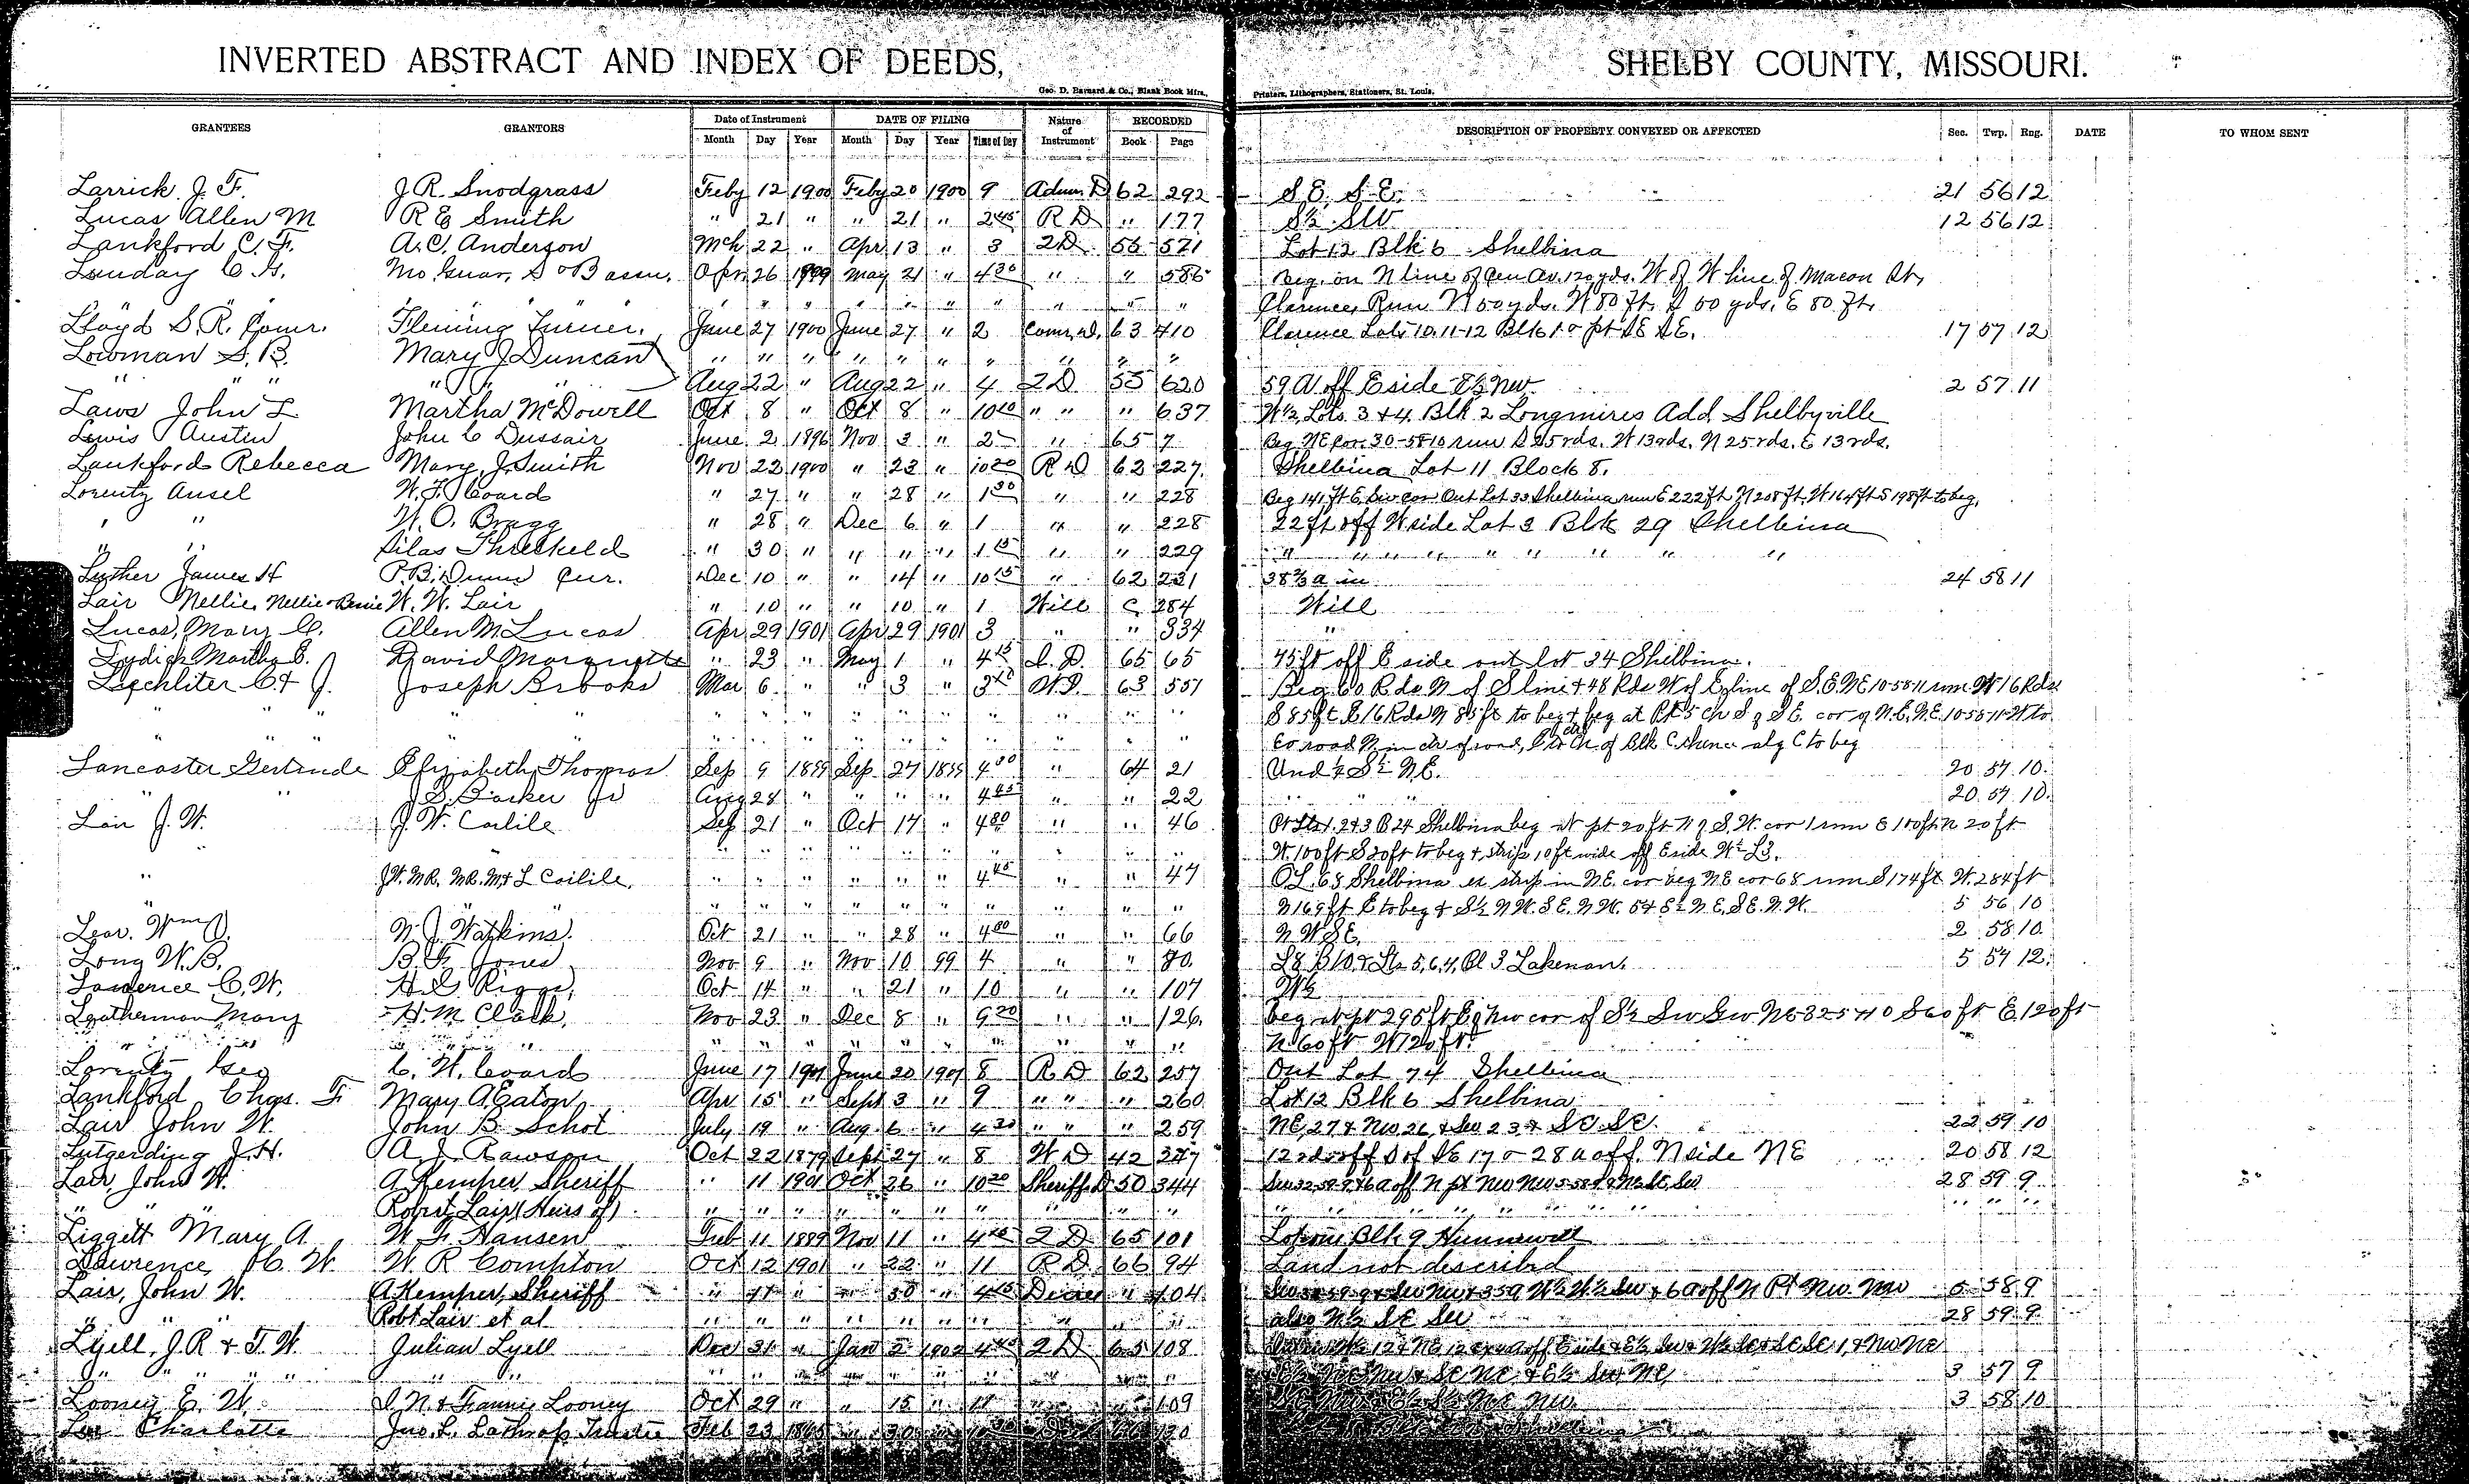 INVERTED ABSTRACT AND INDEX OF DEEDS, SHELBY COUNTY, MISSOURI.
Geo. D. Barnard & Co., Blank Book Mfrs., Printers, Lithographers, Stationers, St. Louis.
GRANTEES GRANTORS Date of Instrument DATE OF FILING Nature of Instrument RECORDED DESCRIPTION OF PROPERTY CONVEYED OR AFFECTED Sec. Twp. Rng. DATE TO WHOM SENT
Month Day Year Month Day Year Time of Day Book Page
Larrick J. F. J. R. Snodgrass Feby 12 1900 Feby 20 1900 9 Adm. D 62 292 S E. S E. 21 56 12
Lucas Allen M R E Smith " 21 " " 21 " 2 45 R D " 177 S½ SW 12 56 12
Lankford C. F. A. C. Anderson Mch 22 " Apr 13 " 3 2 D 55 571 Lot 12 Blk 6 Shelbina
Lunday C. G. Mo. Guar. S & B assn. Apr. 26 1899 May 21 " 4 30 " " 586 Beg. on N line of Cen Av. 120 yds. W of W line of Macon St,
" " " " " " " " " " " " " Clarence, Run N 50 yds. W 80 ft. S 50 yds. E 80 ft.
Lloyd S. R. Comr. Fleming Turner. June 27 1900 June 27 " 2 Comr. D. 63 410 Clarence Lots 10.11-12 Blk 1 & pt SE SE. 17 57 12
Lowman S. B. Mary J Duncan " " " " " " " " " "
" " " " " " Aug 22 " Aug 22 " 4 2 D 55 620 59 A off E side E½ NW. 2 57 11
Laws John L Martha McDowell Oct 8 " Oct 8 " 10 10 " " " 637 W½ Lots 3 & 4 Blk 2 Longmires Add Shelbyville
Lewis Austen John C Dussair June 2 1896 Nov 3 " 2 " 65 7 Beg NE Cor. 30-58-10 run S 25 rds. W 13 rds. N 25 rds. E 13 rds.
Lankford Rebecca Mary J. Smith Nov 22 1900 " 23 " 10 20 R D 62 227. Shelbina Lot 11 Block 8.
Lorentz Ansel W. F. Coard " 27 " " 28 " 1 30 " " 228 Beg 141 ft E. Sw cor Out Lot 33 Shelbina run E 222 ft N 208 ft, W 164 ft S 198 ft to beg.
" " W. O. Bragg " 28 " Dec 6 " 1 " " 228 22 ft off W side Lot 3 Blk 29 Shelbina
" " Silas Threlkeld " 30 " " " " 1 15 " " 229 " " " " " " " " "
Luther James H P. B. Dunn Cur. Dec 10 " " 14 " 10 15 " 62 231 38⅔ a in 24 58 11
Lair Nellie, Nellie & Bernie W. W. Lair " 10 " " 10 " 1 Will C 284 Will
Lucas, Mary C. Allen M. Lucas Apr 29 1901 Apr 29 1901 3 " " 334 "
Lydick Martha E. David Marquette " 23 " May 1 " 4 15 2. D. 65 65 45 ft off E side out lot 34 Shelbina.
Lechliter C & J. Joseph Brooks Mar 6 " " 3 " 3 W D. 63 551 Beg 60 Rds N of S line & 48 Rds W of E line of S.E. NE 10-58-11 run W 16 Rds
" " " " " " " " " " " " " S 85 ft E 16 Rds N 85 ft to beg & beg at Pt 5 ch S of S.E. cor of N.E. N.E. 10-58-11 W to
" " " " " " " " " " Co road N. in ctr of road, E to Ch of Blk C thence alg C to beg
Lancaster Gertrude Elizabeth Thomas Sep 9 1899 Sep 27 1899 4 00 " 64 21 Und ¼ S½ N.E. 20 57 10.
" " J. S. Barker Jr Aug 28 " " " " 4 45 " " 22 " " " 20 57 10.
Lair J. W. J. W. Carlile Sep 21 " Oct 17 " 4 30 " " 46 Pt Lts 1. 2 & 3 B 24 Shelbina beg at pt 20 ft N of S. W. cor 1 run E 100 ft N 20 ft
" " " " " " " " " " W. 100 ft S 20 ft to beg & strip 10 ft wide off E side W½ L3.
" J. W. M R. M R. M & L Carlile. " " " " " " 4 45 " " 47 O L. 68 Shelbina ex strip in N.E. cor beg NE cor 68 run S 174 ft W. 284 ft
" " " " " " " " " " " " N 169 ft E to beg & S½ N W. S E. N W. 5 & S½ N E, S E. N. W. 5 56 10
Lear. Wm J. N. J. Watkins. Oct 21 " " 28 " 4 00 " " 66 N W S E. 2 58 10.
Long W. B. B. F. Jones Nov 9 " Nov 10 99 4 " " 80. L 8 B 10. & Lts 5, 6, 4, Bl 3 Lakenan. 5 57 12.
Lawrence C. W. H. G. Riggs. Oct 14 " " 21 " 10 " " 107 W½
Leatherman Mary H. M. Clark. Nov 23 " Dec 8 " 9 20 " " 126. beg at pt 295 ft E of NW cor of S½ Sw Sw NE 32 57 10 S 60 ft E. 120 ft
" " " " " " " " " " " N. 60 ft W 120 ft.
Lorentz Geo C. W. Coard June 17 1901 June 20 1901 8 R D 62 257 Out Lot 74 Shelbina
Lankford Chas. F Mary A. Eaton Apr 15 " Sept 3 " 9 " " " 260 Lot 12 Blk 6 Shelbina
Lair John W. John B Schot July 19 " Aug. 6 " 4 30 " " " 259 NE, 27 & NW 26, & SW 23 & SE SE. 22 59 10
Lutgerding J. H. A. J. Rawson Oct 22 1879 Sept 27 " 8 W D 42 327 12 rds off S of SE 17 & 28 a off N side NE 20 58 12
Lair, John W. A Kemper, Sheriff " 11 1901 Oct 26 " 10 20 Sheriff D 50 344 28 59 9
" " Robert Lair (Heirs of) " " " " " " " " " " " " " " " " " " "
Liggett Mary A W. F. Hansen Feb 11 1889 Nov 11 " 4 2 D 65 101 Lot Blk 9 Hunnewell
Lawrence, C. W. W. R Compton Oct 12 1901 " 22 " 11 R D 66 94 Land not described
Lair, John W. A Kemper, Sheriff " 11 " " 30 " 4 " 104 W½ W½ SW & 6 a off N Pt NW. NW 5 58 9
" " Robt Lair et al " " " " " " " " " " also N½ SE SW 28 59 9
Lyell, J. R & T. W. Julian Lyell Dec 31 " Jan 2 1902 4 2 D 65 108
" " " " " " " " " " " " " 3 57 9
Looney E. W. I. N. & Fannie Looney Oct 29 " " 15 " 11 " " 109 3 58 10
Charlotte Jno. L. Lathrop Trustee Feb 23 1865 " 30